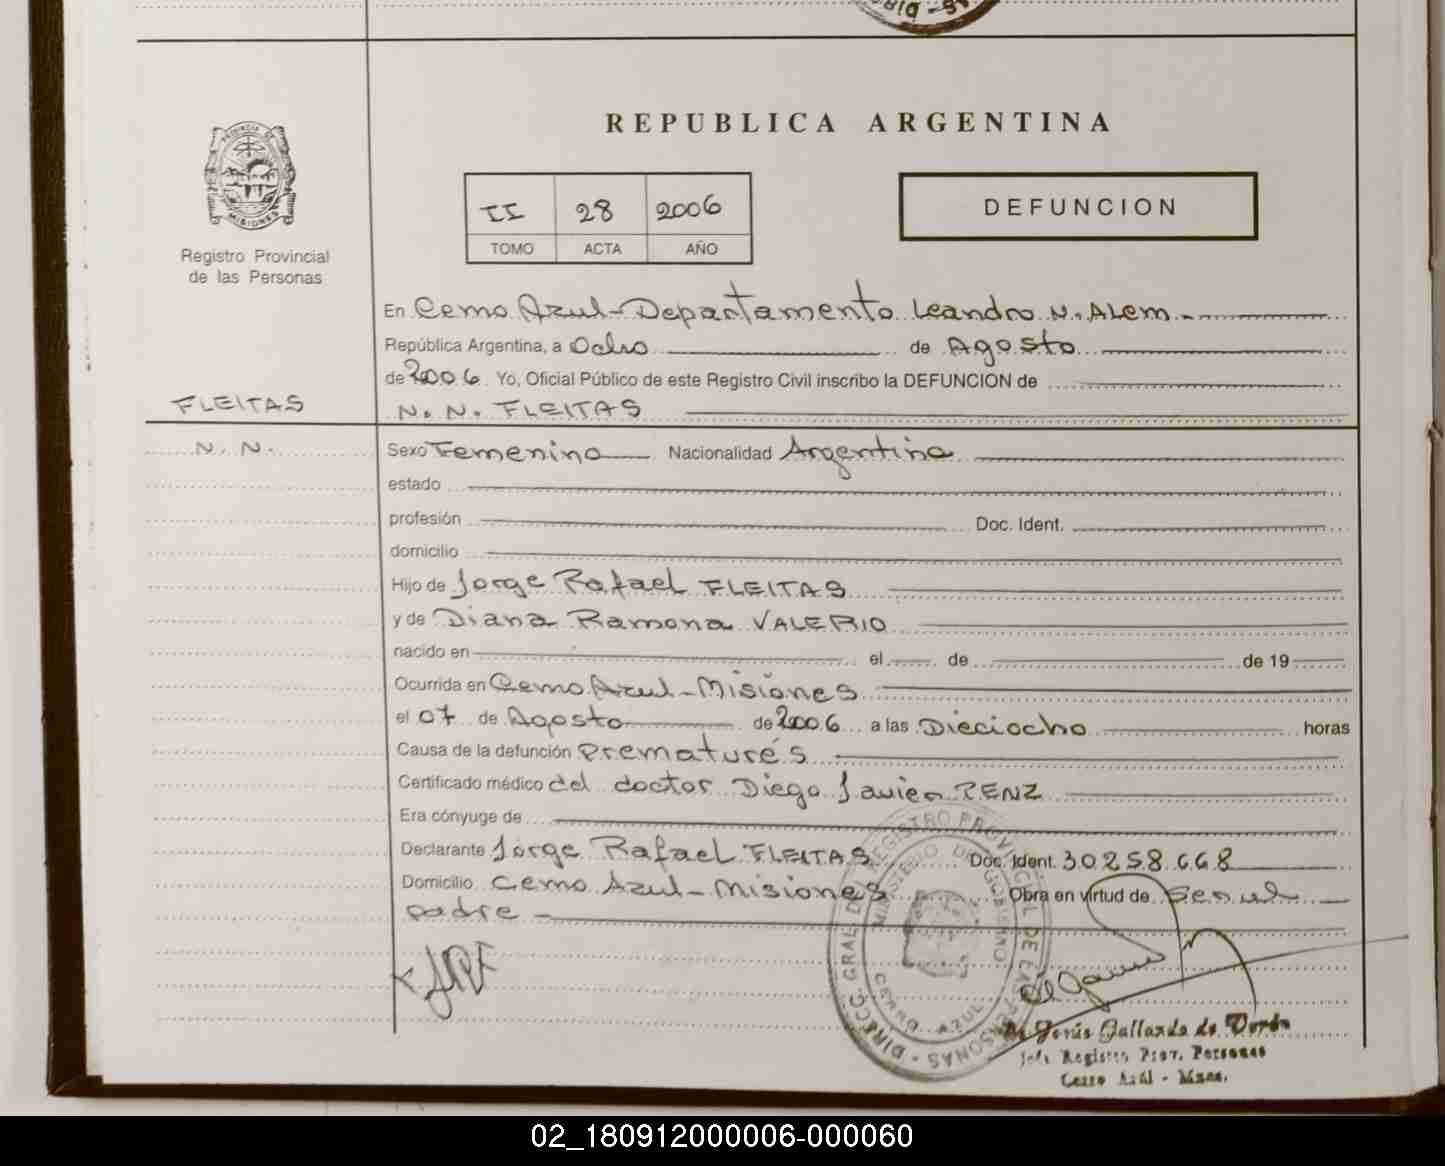 REPUBLICA ARGENTINA
PROVINCIA DE
MISIONES
Registro Provincial
de las Personas
II 28 2006
TOMO ACTA AÑO
DEFUNCION
En Cerro Azul-Departamento Leandro N. ALEM.-
República Argentina, a Ocho de Agosto
de 2006. Yo, Oficial Público de este Registro Civil inscribo la DEFUNCION de
FLEITAS
N. N. FLEITAS
N. N.
Sexo Femenino Nacionalidad Argentina
estado
profesión Doc. Ident.
domicilio
Hijo de Jorge Rafael FLEITAS
y de Diana Ramona VALERIO
nacido en el de de 19
Ocurrida en Cerro Azul-Misiones
el 07 de Agosto de 2006 a las Dieciocho horas
Causa de la defunción Prematurés
Certificado médico del doctor Diego Javier RENZ
Era cónyuge de
Declarante Jorge Rafael FLEITAS Doc. Ident. 30258.668
Domicilio Cerro Azul-Misiones Obra en virtud de Ser el
padre
DIREC. GRAL. DEL REGISTRO PROVINCIAL DE LAS PERSONAS
MINISTERIO DE GOBIERNO
CERRO AZUL
Jesús Gallardo de
Jefe Registro Prov. Personas
Cerro Azul - Mnes.
02_180912000006-000060